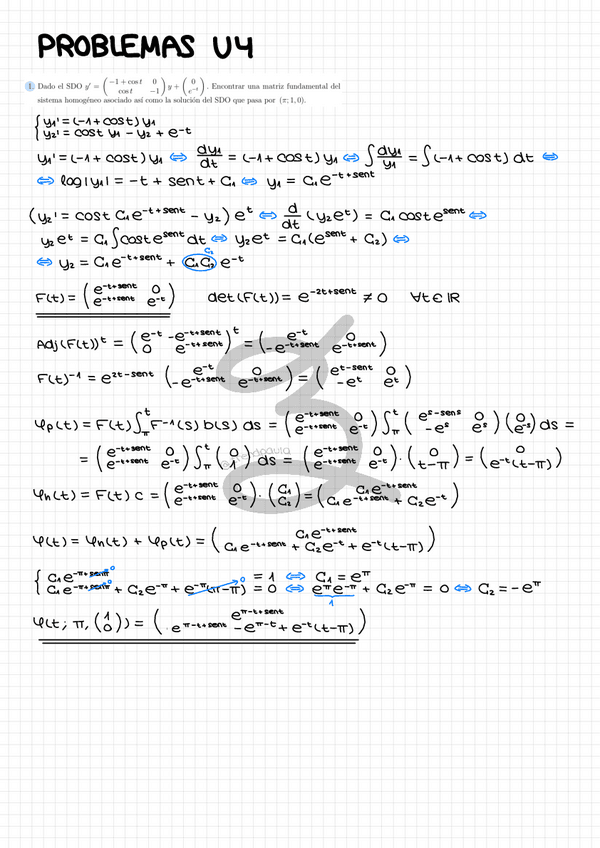 PROBLEMAS U4
1. Dado el SDO y' = ( -1 + cos t 0 ; cos t -1 ) y + ( 0 ; e^{-t} ). Encontrar una matriz fundamental del
sistema homogéneo asociado así como la solución del SDO que pasa por (π; 1, 0).
{ y₁' = (-1 + cost) y₁
y₂' = cost y₁ - y₂ + e^{-t}
y₁' = (-1 + cost) y₁ ⇔ dy₁/dt = (-1 + cost) y₁ ⇔ ∫ dy₁/y₁ = ∫(-1 + cost) dt ⇔
⇔ log|y₁| = -t + sent + C₁ ⇔ y₁ = C₁e^{-t+sent}
(y₂' = cost C₁e^{-t+sent} - y₂) e^t ⇔ d/dt (y₂e^t) = C₁ cost e^{sent} ⇔
y₂e^t = C₁ ∫cost e^{sent} dt ⇔ y₂e^t = C₁(e^{sent} + C₂) ⇔
⇔ y₂ = C₁e^{-t+sent} + C₁C₂ e^{-t} C₂
F(t) = ( e^{-t+sent} 0 ; e^{-t+sent} e^{-t} ) det(F(t)) = e^{-2t+sent} ≠ 0 ∀t ∈ ℝ
Adj(F(t))^t = ( e^{-t} -e^{-t+sent} ; 0 e^{-t+sent} )^t = ( e^{-t} 0 ; -e^{-t+sent} e^{-t+sent} )
F(t)^{-1} = e^{2t-sent} ( e^{-t} 0 ; -e^{-t+sent} e^{-t+sent} ) = ( e^{t-sent} 0 ; -e^t e^t )
φp(t) = F(t) ∫_π^t F^{-1}(s) b(s) ds = ( e^{-t+sent} 0 ; e^{-t+sent} e^{-t} ) ∫_π^t ( e^{s-sens} 0 ; -e^s e^s ) ( 0 ; e^{-s} ) ds =
= ( e^{-t+sent} 0 ; e^{-t+sent} e^{-t} ) ∫_π^t ( 0 ; 1 ) ds = ( e^{-t+sent} 0 ; e^{-t+sent} e^{-t} ) · ( 0 ; t-π ) = ( 0 ; e^{-t}(t-π) )
φh(t) = F(t) C = ( e^{-t+sent} 0 ; e^{-t+sent} e^{-t} ) · ( C₁ ; C₂ ) = ( C₁e^{-t+sent} ; C₁e^{-t+sent} + C₂e^{-t} )
φ(t) = φh(t) + φp(t) = ( C₁e^{-t+sent} ; C₁e^{-t+sent} + C₂e^{-t} + e^{-t}(t-π) )
{ C₁e^{-π+senπ} 0 = 1 ⇔ C₁ = e^π
C₁e^{-π+senπ} 0 + C₂e^{-π} + e^{-π}(π-π) 0 = 0 ⇔ e^π e^{-π} + C₂e^{-π} = 0 ⇔ C₂ = -e^π
1
φ(t; π, ( 1 ; 0 )) = ( e^{π-t+sent} ; e^{π-t+sent} - e^{π-t} + e^{-t}(t-π) )